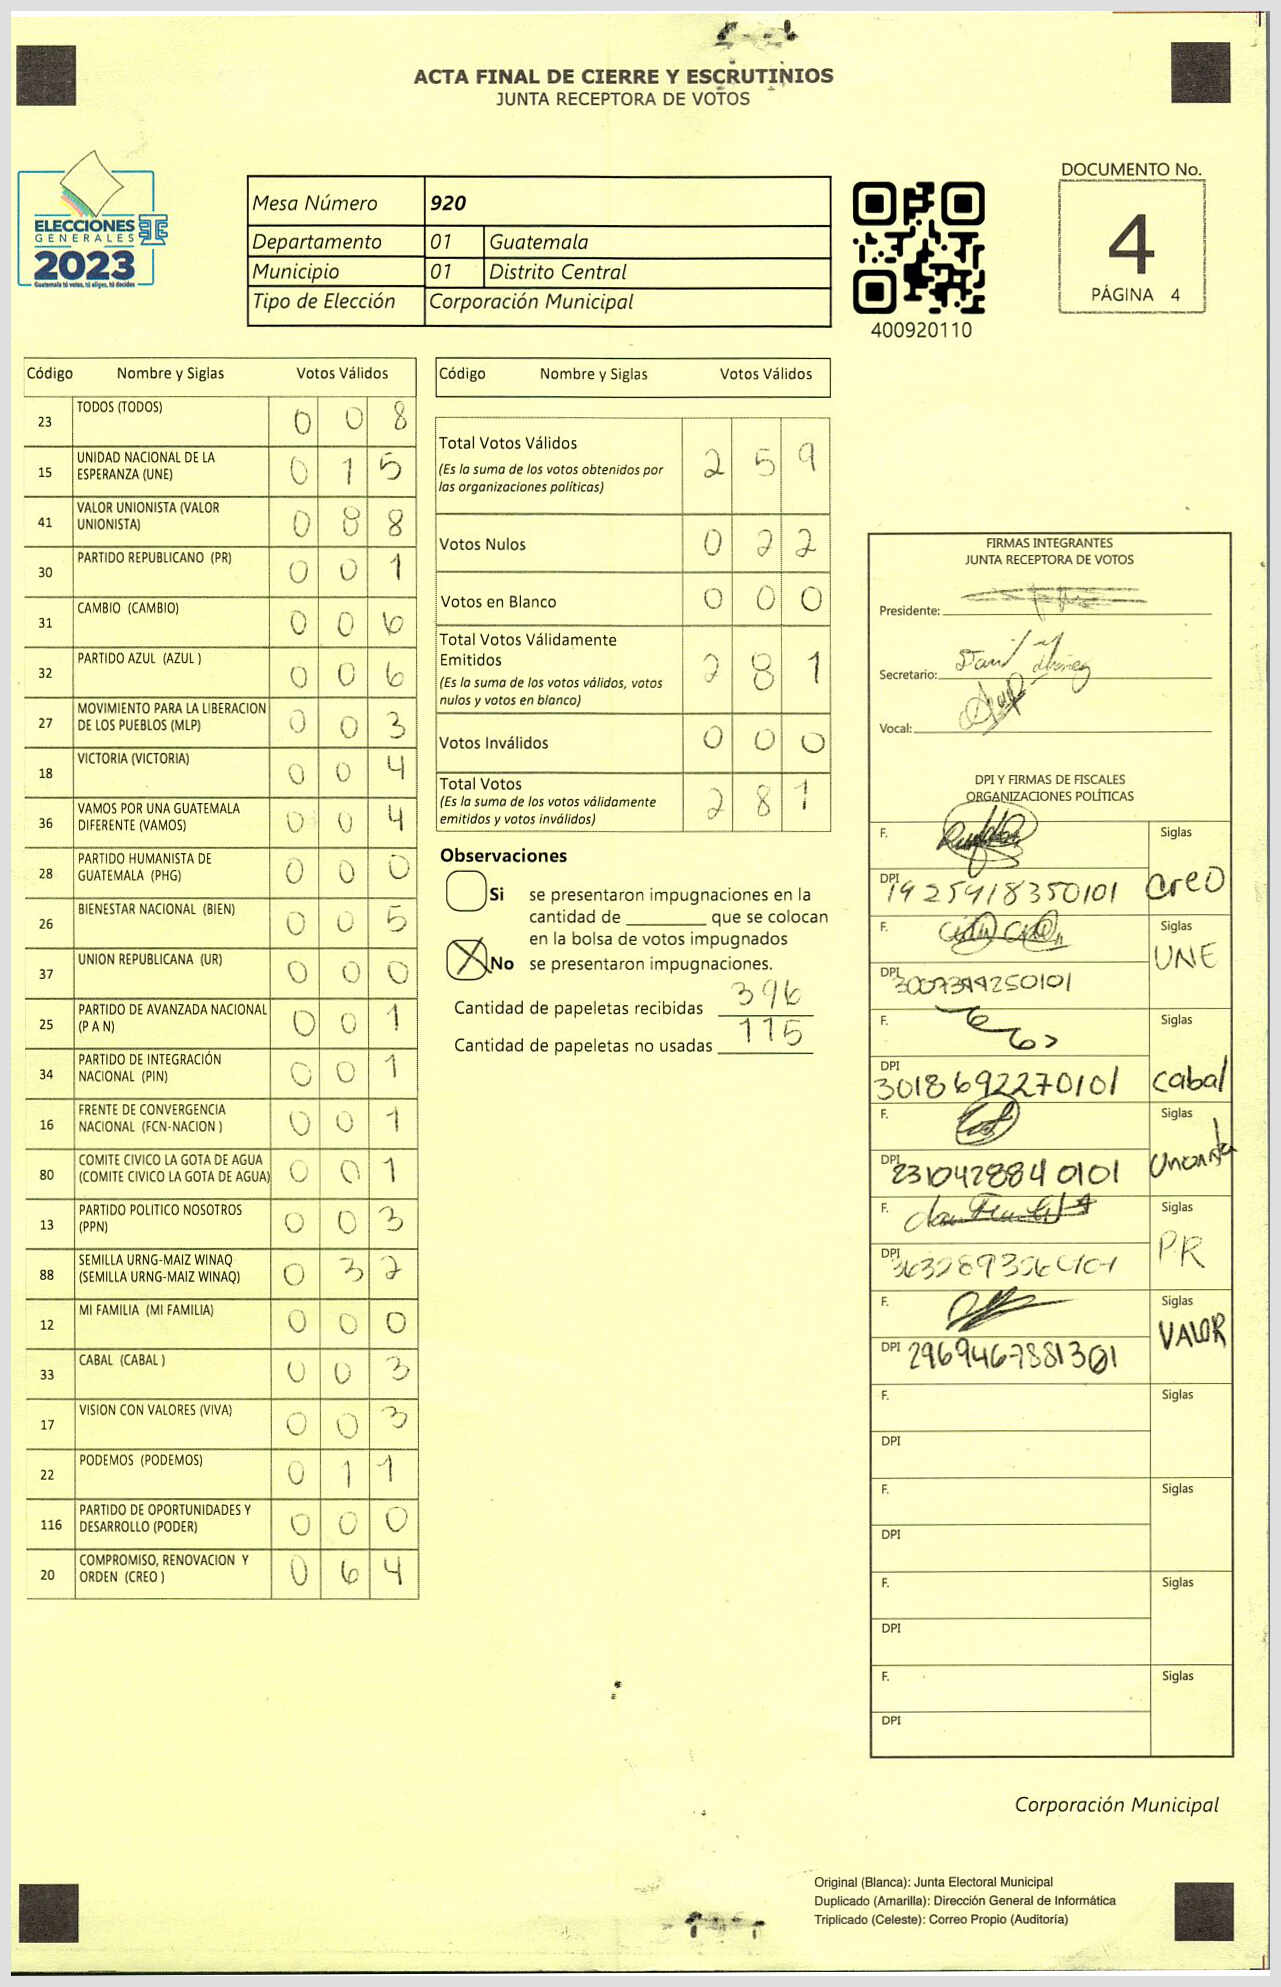 ACTA FINAL DE CIERRE Y ESCRUTINIOS
JUNTA RECEPTORA DE VOTOS
ELECCIONES
GENERALES
2023
Guatemala tú votas, tú eliges, tú decides
Mesa Número 920
Departamento 01 Guatemala
Municipio 01 Distrito Central
Tipo de Elección Corporación Municipal
400920110
DOCUMENTO No.
4
PÁGINA 4
Código Nombre y Siglas Votos Válidos
23 TODOS (TODOS) 0 0 8
15 UNIDAD NACIONAL DE LA ESPERANZA (UNE) 0 1 5
41 VALOR UNIONISTA (VALOR UNIONISTA) 0 8 8
30 PARTIDO REPUBLICANO (PR) 0 0 1
31 CAMBIO (CAMBIO) 0 0 6
32 PARTIDO AZUL (AZUL ) 0 0 6
27 MOVIMIENTO PARA LA LIBERACION DE LOS PUEBLOS (MLP) 0 0 3
18 VICTORIA (VICTORIA) 0 0 4
36 VAMOS POR UNA GUATEMALA DIFERENTE (VAMOS) 0 0 4
28 PARTIDO HUMANISTA DE GUATEMALA (PHG) 0 0 0
26 BIENESTAR NACIONAL (BIEN) 0 0 5
37 UNION REPUBLICANA (UR) 0 0 0
25 PARTIDO DE AVANZADA NACIONAL (P A N) 0 0 1
34 PARTIDO DE INTEGRACIÓN NACIONAL (PIN) 0 0 1
16 FRENTE DE CONVERGENCIA NACIONAL (FCN-NACION ) 0 0 1
80 COMITE CIVICO LA GOTA DE AGUA (COMITE CIVICO LA GOTA DE AGUA) 0 0 1
13 PARTIDO POLITICO NOSOTROS (PPN) 0 0 3
88 SEMILLA URNG-MAIZ WINAQ (SEMILLA URNG-MAIZ WINAQ) 0 3 2
12 MI FAMILIA (MI FAMILIA) 0 0 0
33 CABAL (CABAL ) 0 0 3
17 VISION CON VALORES (VIVA) 0 0 3
22 PODEMOS (PODEMOS) 0 1 1
116 PARTIDO DE OPORTUNIDADES Y DESARROLLO (PODER) 0 0 0
20 COMPROMISO, RENOVACION Y ORDEN (CREO ) 0 6 4
Código Nombre y Siglas Votos Válidos
Total Votos Válidos 2 5 9
(Es la suma de los votos obtenidos por
las organizaciones políticas)
Votos Nulos 0 2 2
Votos en Blanco 0 0 0
Total Votos Válidamente
Emitidos 2 8 1
(Es la suma de los votos válidos, votos
nulos y votos en blanco)
Votos Inválidos 0 0 0
Total Votos 2 8 1
(Es la suma de los votos válidamente
emitidos y votos inválidos)
Observaciones
Si se presentaron impugnaciones en la
cantidad de ________ que se colocan
en la bolsa de votos impugnados
X No se presentaron impugnaciones.
Cantidad de papeletas recibidas 396
Cantidad de papeletas no usadas 115
FIRMAS INTEGRANTES
JUNTA RECEPTORA DE VOTOS
Presidente:
Secretario:
Vocal:
DPI Y FIRMAS DE FISCALES
ORGANIZACIONES POLÍTICAS
F. Siglas
DPI 1925918350101 Creo
F. Siglas
DPI UNE
F. Siglas
DPI 3018692270101 Cabal
F. Siglas
DPI 2310428840101
F. Siglas
DPI PR
F. Siglas
DPI VALOR
F. Siglas
DPI
F. Siglas
DPI
F. Siglas
DPI
F. Siglas
DPI
Corporación Municipal
Original (Blanca): Junta Electoral Municipal
Duplicado (Amarilla): Dirección General de Informática
Triplicado (Celeste): Correo Propio (Auditoría)